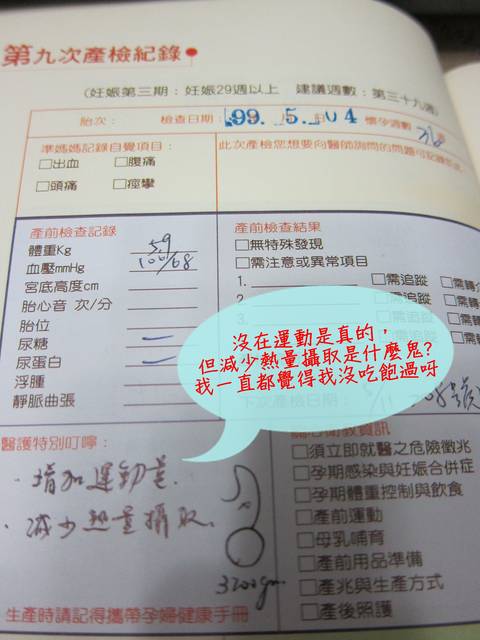 第九次產檢紀錄
(妊娠第三期：妊娠29週以上 建議週數：第三十九週)
胎次： 檢查日期：99. 5. 04 懷孕週數 36 週
準媽媽記錄自覺項目：
□出血 □腹痛
□頭痛 □痙攣
此次產檢您想要向醫師詢問的問題可記錄於此
產前檢查記錄
體重Kg 59
血壓mmHg 100/68
宮底高度cm
胎心音 次/分
胎位
尿糖 —
尿蛋白 —
浮腫
靜脈曲張
產前檢查結果
□無特殊發現
□需注意或異常項目
1. □需追蹤 □需轉
2. □需追蹤 □需轉
□需追蹤 □需轉
□需追蹤 □需轉
下次檢查日期：
沒在運動是真的，
但減少熱量攝取是什麼鬼?
我一直都覺得我沒吃飽過呀
醫護特別叮嚀：
· 增加運動量.
· 減少熱量攝取.
3200gm
衛教資訊
□須立即就醫之危險徵兆
□孕期感染與妊娠合併症
□孕期體重控制與飲食
□產前運動
□母乳哺育
□產前用品準備
□產兆與生產方式
□產後照護
生產時請記得攜帶孕婦健康手冊